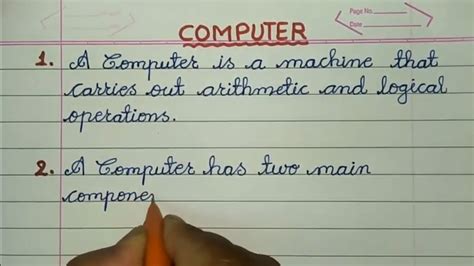 Page No.
COMPUTER
1. A Computer is a machine that
carries out arithmetic and logical
operations.
2. A Computer has two main
compone